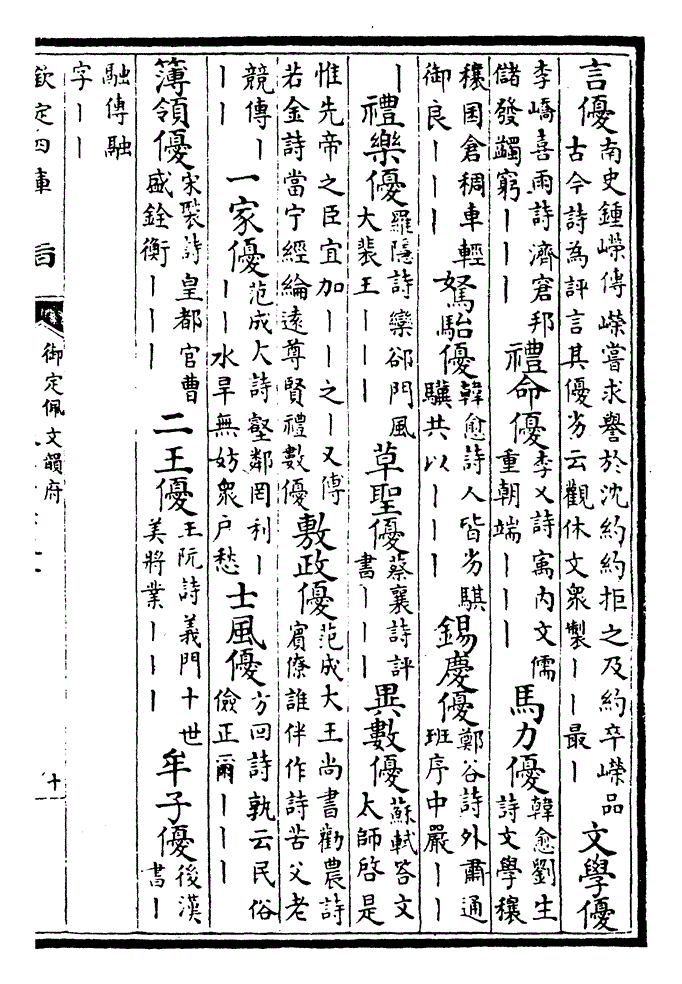 言優南史鍾嶸傳嶸嘗求譽於沈約約拒之及約卒嶸品古今詩為評言其優劣云觀休文眾製丨丨最丨 文學優
李嶠喜雨詩濟窘邦儲發蠲窮丨丨丨 禮命優李乂詩寓內文儒重朝端丨丨丨 馬力優韓愈劉生詩文學穰
穰囷倉稠車輕御良丨丨丨 駑駘優韓愈詩人皆劣騏驥共以丨丨丨 錫慶優鄭谷詩外肅通班序中嚴丨丨
丨 禮樂優羅隱詩欒郤門風大裴王丨丨丨 草聖優蔡襄詩評書丨丨丨 異數優蘇軾答文太師啓是
惟先帝之臣宜加丨丨之丨又傳若金詩當宁經綸遠尊賢禮數優 敷政優范成大王尚書勸農詩賓僚誰伴作詩苦父老
競傳丨丨丨 一家優范成大詩壑鄰罔利丨丨丨水旱無妨眾戶愁 士風優方回詩孰云民俗儉正爾丨丨丨
簿領優宋褧詩皇都官曹盛銓衡丨丨丨 二王優王阮詩義門十世美將業丨丨丨 牟子優後漢書丨
融傳融字丨丨
欽定四庫
御定佩文韻府
十